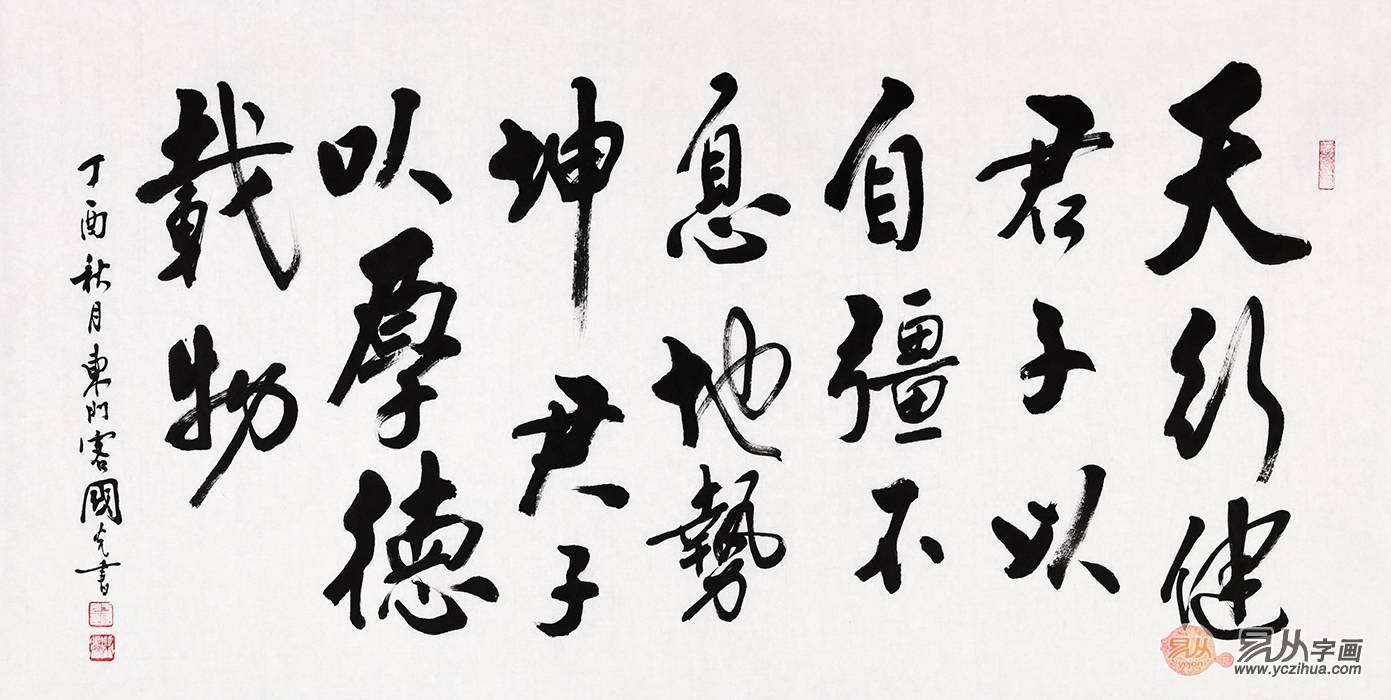 天行健
君子以
自彊不
息地勢
坤君子
以厚德
載物
丁酉秋月東門客國光書
易从
yejon
易从字画
www.yczihua.com